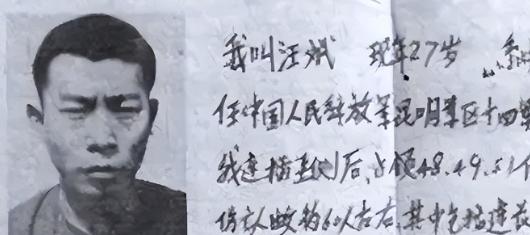 我叫汪斌 现年27岁 系
任中国人民解放军昆明军区十四军
我连插到后,占领48.49.51
伤亡 60人左右,其中包括连长